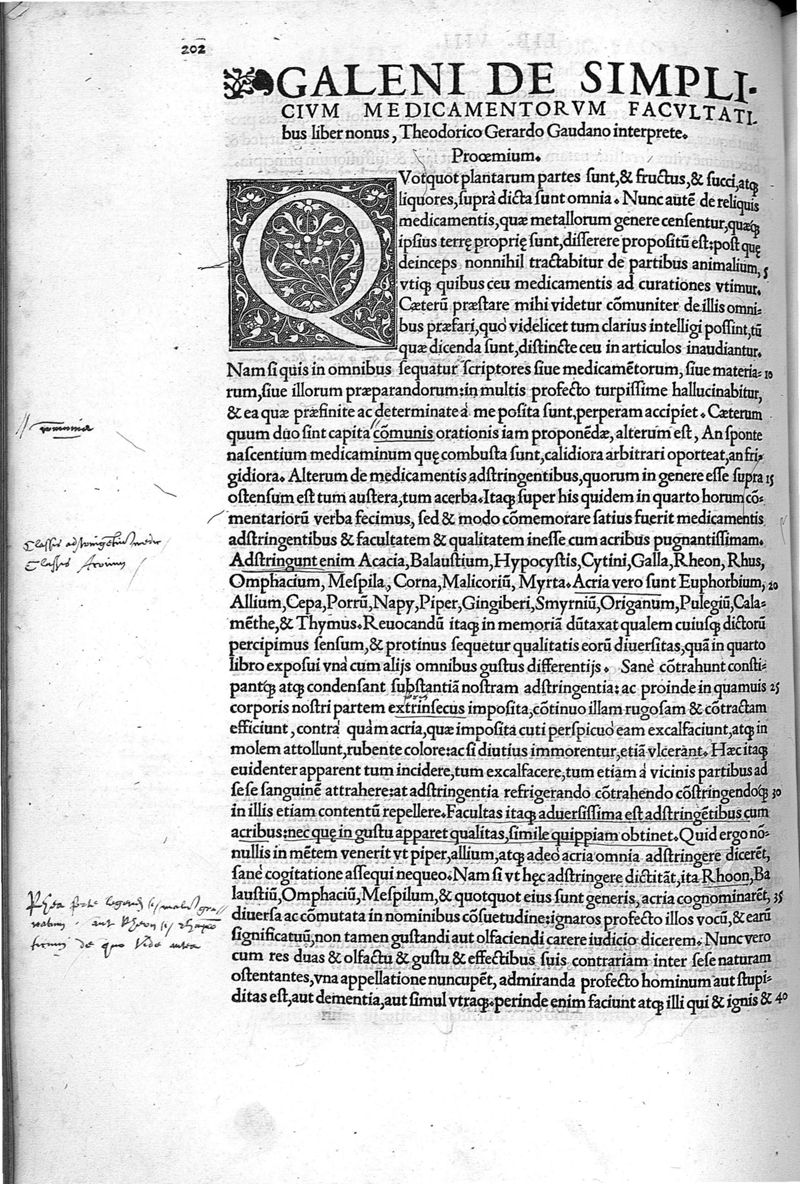 202
GALENI DE SIMPLI-
CIVM MEDICAMENTORVM FACVLTATI-
bus liber nonus, Theodorico Gerardo Gaudano interprete.
Prooemium.
QVotquot plantarum partes sunt, & fructus, & succi, atq;
liquores, suprà dicta sunt omnia. Nunc autẽ de reliquis
medicamentis, quæ metallorum genere censentur, quæq;
ipsius terrę proprię sunt, disserere propositũ est: post quę
deinceps nonnihil tractabitur de partibus animalium, 5
vtiq; quibus ceu medicamentis ad curationes vtimur.
Cæterũ præstare mihi videtur cõmuniter de illis omni-
bus præfari, quò videlicet tum clarius intelligi possint, tũ
quæ dicenda sunt, distincte ceu in articulos inaudiantur.
Nam si quis in omnibus sequatur scriptores siue medicamẽtorum, siue materia- 10
rum, siue illorum præparandorum: in multis profecto turpissime hallucinabitur,
& ea quæ præfinite ac determinate à me posita sunt, perperam accipiet. Cæterum
quum duo sint capita cõmunis orationis iam proponẽdæ, alterum est, An sponte
nascentium medicaminum quę combusta sunt, calidiora arbitrari oporteat, an fri-
gidiora. Alterum de medicamentis adstringentibus, quorum in genere esse supra 15
ostensum est tum austera, tum acerba. Itaq; super his quidem in quarto horum cõ-
mentariorũ verba fecimus, sed & modo cõmemorare satius fuerit medicamentis
adstringentibus & facultatem & qualitatem inesse cum acribus pugnantissimam.
Adstringunt enim Acacia, Balaustium, Hypocystis, Cytini, Galla, Rheon, Rhus,
Omphacium, Mespila, Corna, Malicoriũ, Myrta. Acria vero sunt Euphorbium, 20
Allium, Cepa, Porrũ, Napy, Piper, Gingiberi, Smyrniũ, Origanum, Pulegiũ, Cala-
mẽthe, & Thymus. Reuocandũ itaq; in memoriã dũtaxat qualem cuiusq; dictorũ
percipimus sensum, & protinus sequetur qualitatis eorũ diuersitas, quã in quarto
libro exposui vnà cum alijs omnibus gustus differentijs. Sanè cõtrahunt consti-
pantq; atq; condensant substantiã nostram adstringentia: ac proinde in quamuis 25
corporis nostri partem extrinsecus imposita, cõtinuo illam rugosam & cõtractam
efficiunt, contrà quàm acria, quæ imposita cuti perspicuo eam excalfaciunt, atq; in
molem attollunt, rubente colore: ac si diutius immorentur, etiã vlcerant. Hæc itaq;
euidenter apparent tum incidere, tum excalfacere, tum etiam à vicinis partibus ad
sese sanguinẽ attrahere: at adstringentia refrigerando cõtrahendo cõstringendoq; 30
in illis etiam contentũ repellere. Facultas itaq; aduersissima est adstringẽtibus cum
acribus: nec quę in gustu apparet qualitas, simile quippiam obtinet. Quid ergo nõ-
nullis in mẽtem venerit vt piper, allium, atq; adeo acria omnia adstringere dicerẽt,
sanè cogitatione assequi nequeo. Nam si vt hęc adstringere dictitãt, ita Rhoon, Ba
laustiũ, Omphaciũ, Mespilum, & quotquot eius sunt generis, acria cognominarẽt, 35
diuersa ac cõmutata in nominibus cõsuetudine: ignaros profecto illos vocũ, & earũ
significatuũ, non tamen gustandi aut olfaciendi carere iudicio dicerem. Nunc vero
cum res duas & olfactu & gustu & effectibus suis contrariam inter sese naturam
ostentantes, vna appellatione nuncupẽt, admiranda profecto hominum aut stupi-
ditas est, aut dementia, aut simul vtraq;. perinde enim faciunt atq; illi qui & ignis & 40